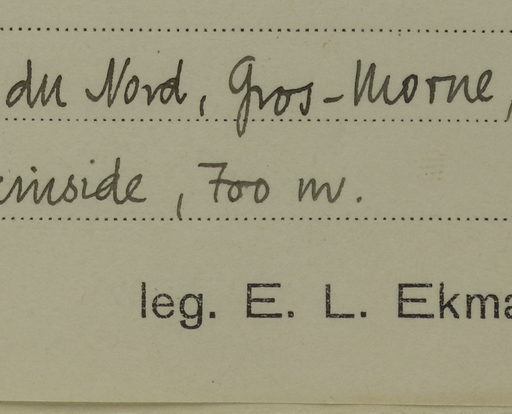 du Nord, Gros-Morne,
erinside, 700 m.
leg. E. L. Ekma